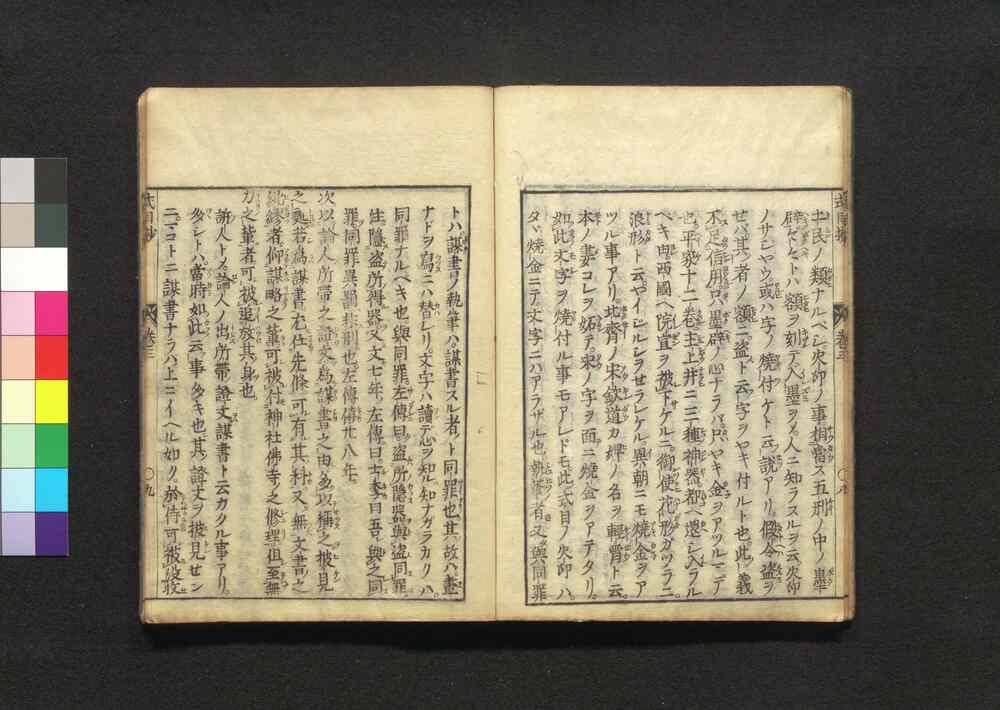 土民ノ類ナルベシ火印ノ事相當ス五刑ノ中ノ墨
辟ゼトハ額ヲ刻テ入墨ヲメ人ニ知ラスルヲ云火印
ノサレヤウ或ハ字ノ焼付ケト云説アリ假令盗ヲ
セバ其者ノ額ニ盗ト云字ヲヤキ付ルト也此義
不足信用只墨辟ノ心ナラバ只ヤキ金ヲアツルマデ
也平家十二卷主上并ニ三種神器都ヘ還シ入ラル
ベキ由西國ヘ院宣ヲ被下ケルニ御使花形ガツラニ
浪形ト云ヤイジルシヲセラレケル異朝ニモ焼金ヲア
ツル事アリ北齊ノ宋欽道カ婢ノ名ヲ輕霄ト云
本ノ妻コレヲ妬テ宋ノ字ヲ面ニ焼金ヲアテタリ
如此文字ヲ焼付ル事モアレドモ此式目ノ火印ハ
タヾ焼金ニテ文字ニハアラザル也執筆者又與同罪
トハ謀書ノ執筆ハ謀書スル者ト同罪也其故ハ畫
ナドヲ寫ニハ替レリ文字ハ讀テ心ヲ知ル知ナガラカクハ
同罪ナルベキ也與同罪左傳曰盗所隠器與盗同罪
註隠盗所得器又文七年左傳曰士季曰吾與之同
罪同罪異罰非刑也左傳僖廿八年
次以論人所帶之證文爲謀書之由多以稱之披見
之處若爲謀書尤任先條可有其科又無文書之
紕繆者仰謀略之輩可被付神社佛寺之修理但至無
力之輩者可被追放其身也
訴人トメ論人ノ出所帶證文謀書ト云カクル事アリ
多シトハ當時如此云事多キ也其證文ヲ披見セン
ニマコトニ謀書ナラハ上ニイヘル如ク於侍可被没収
卷三
〇九
式目抄
卷三